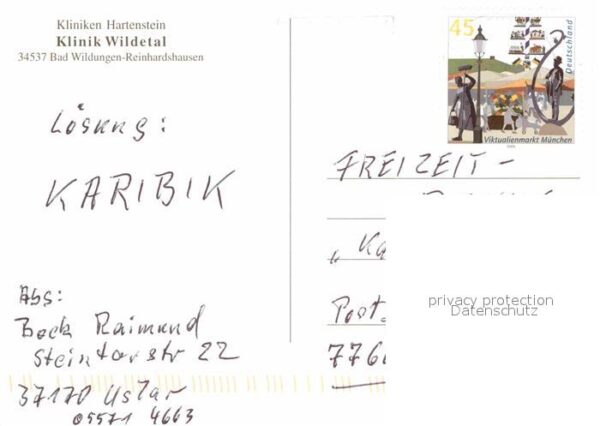 Kliniken Hartenstein
Klinik Wildetal
34537 Bad Wildungen-Reinhardshausen
Lösung:
KARIBIK
Abs:
Beck Raimund
Steintorstr 22
37170 Uslar
05571 4663
45
Deutschland
Viktualienmarkt München
FREIZEIT-
„Ka
Post
776
privacy protection
Datenschutz